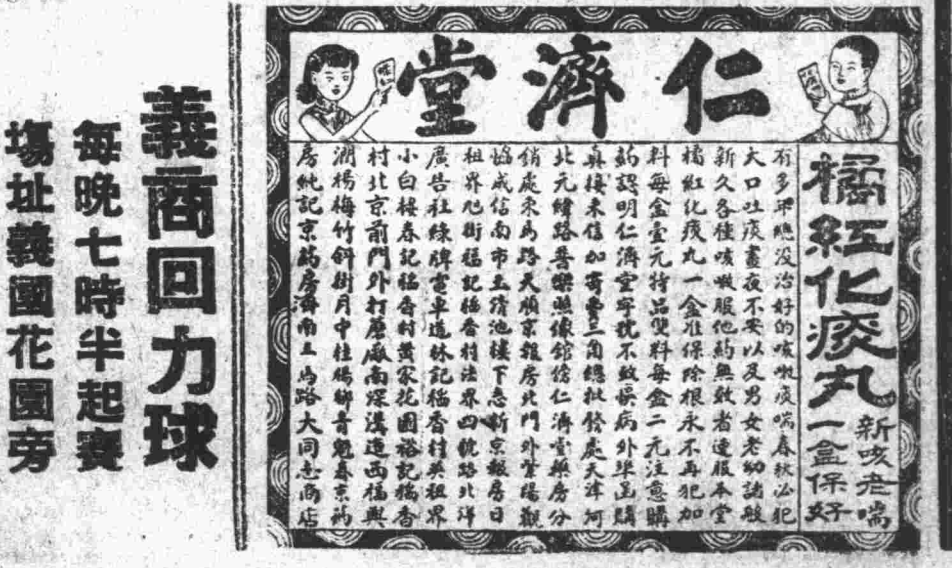 仁濟堂
橘紅化痰丸
新咳老喘
一盒保好
有多年總沒治好的咳嗽痰喘春秋必犯
大口吐痰晝夜不安以及男女老幼諸般
新久各種咳嗽服他藥無效者速服本堂
橘紅化痰丸一盒准保除根永不再犯加
料每盒壹元特品雙料每盒二元注意購
药認明仁濟堂字號不致悞病外埠函購
真接來信加寄費三角總批發處天津河
北元緯路普樂照像舘傍仁濟堂藥房分
銷處東馬路天順京報房北門外堂陽觀
恊成信南市玉清池樓下志新京報房日
租界旭街福記稻香村法界四號路北洋
廣告社綠牌電車道林記稻香村英租界
小白樓春記稻香村黄家花園裕記稻香
村北京前門外打磨廠南深溝道西福興
潤楊梅竹斜街月中桂腸聊青魁春京药
房純記京药房濟南三馬路大同志商店
義商回力球
每晚七時半起賽
塲址義國花園旁